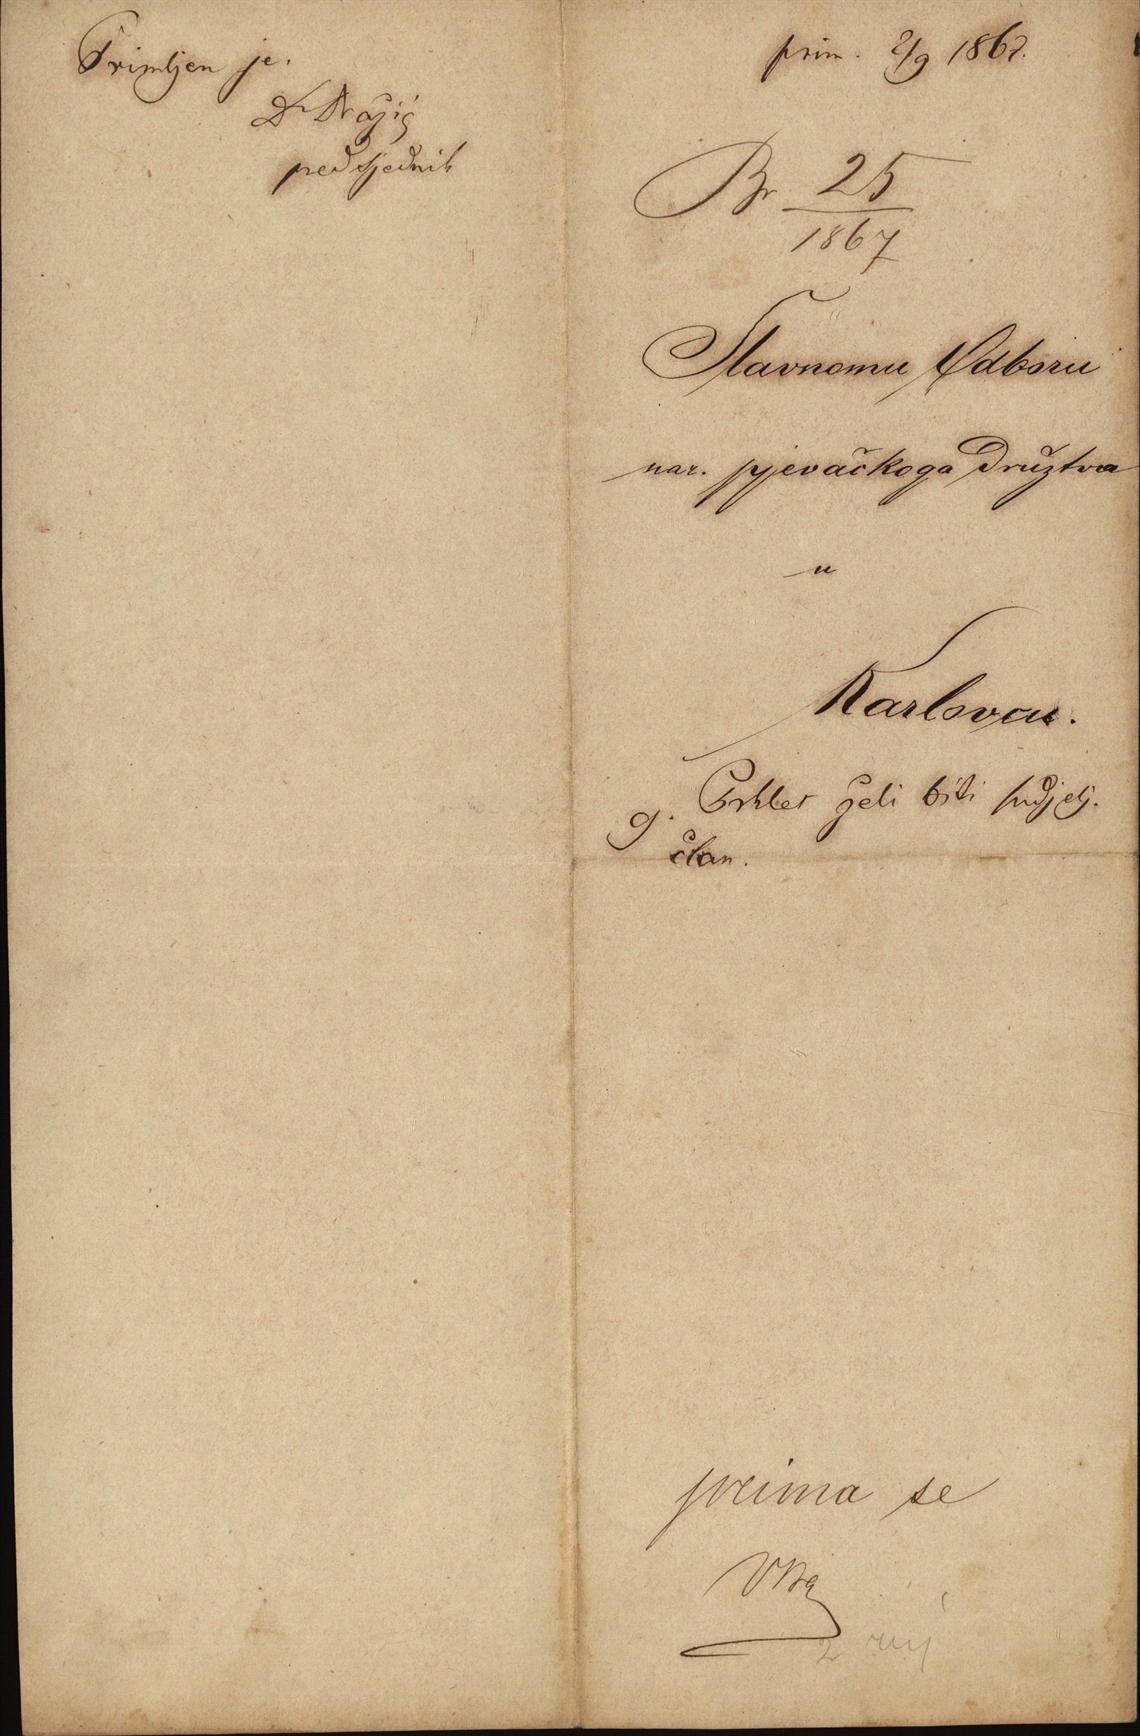 Primljen je.
Dr Dražić
predsjednik
prim. 2/9 1867.
Br 25
1867
Slavnomu Odboru
nar. pjevačkoga Družtva
u
Karlovcu.
g. želi biti sudjelj.
član.
prima se
2 ruj